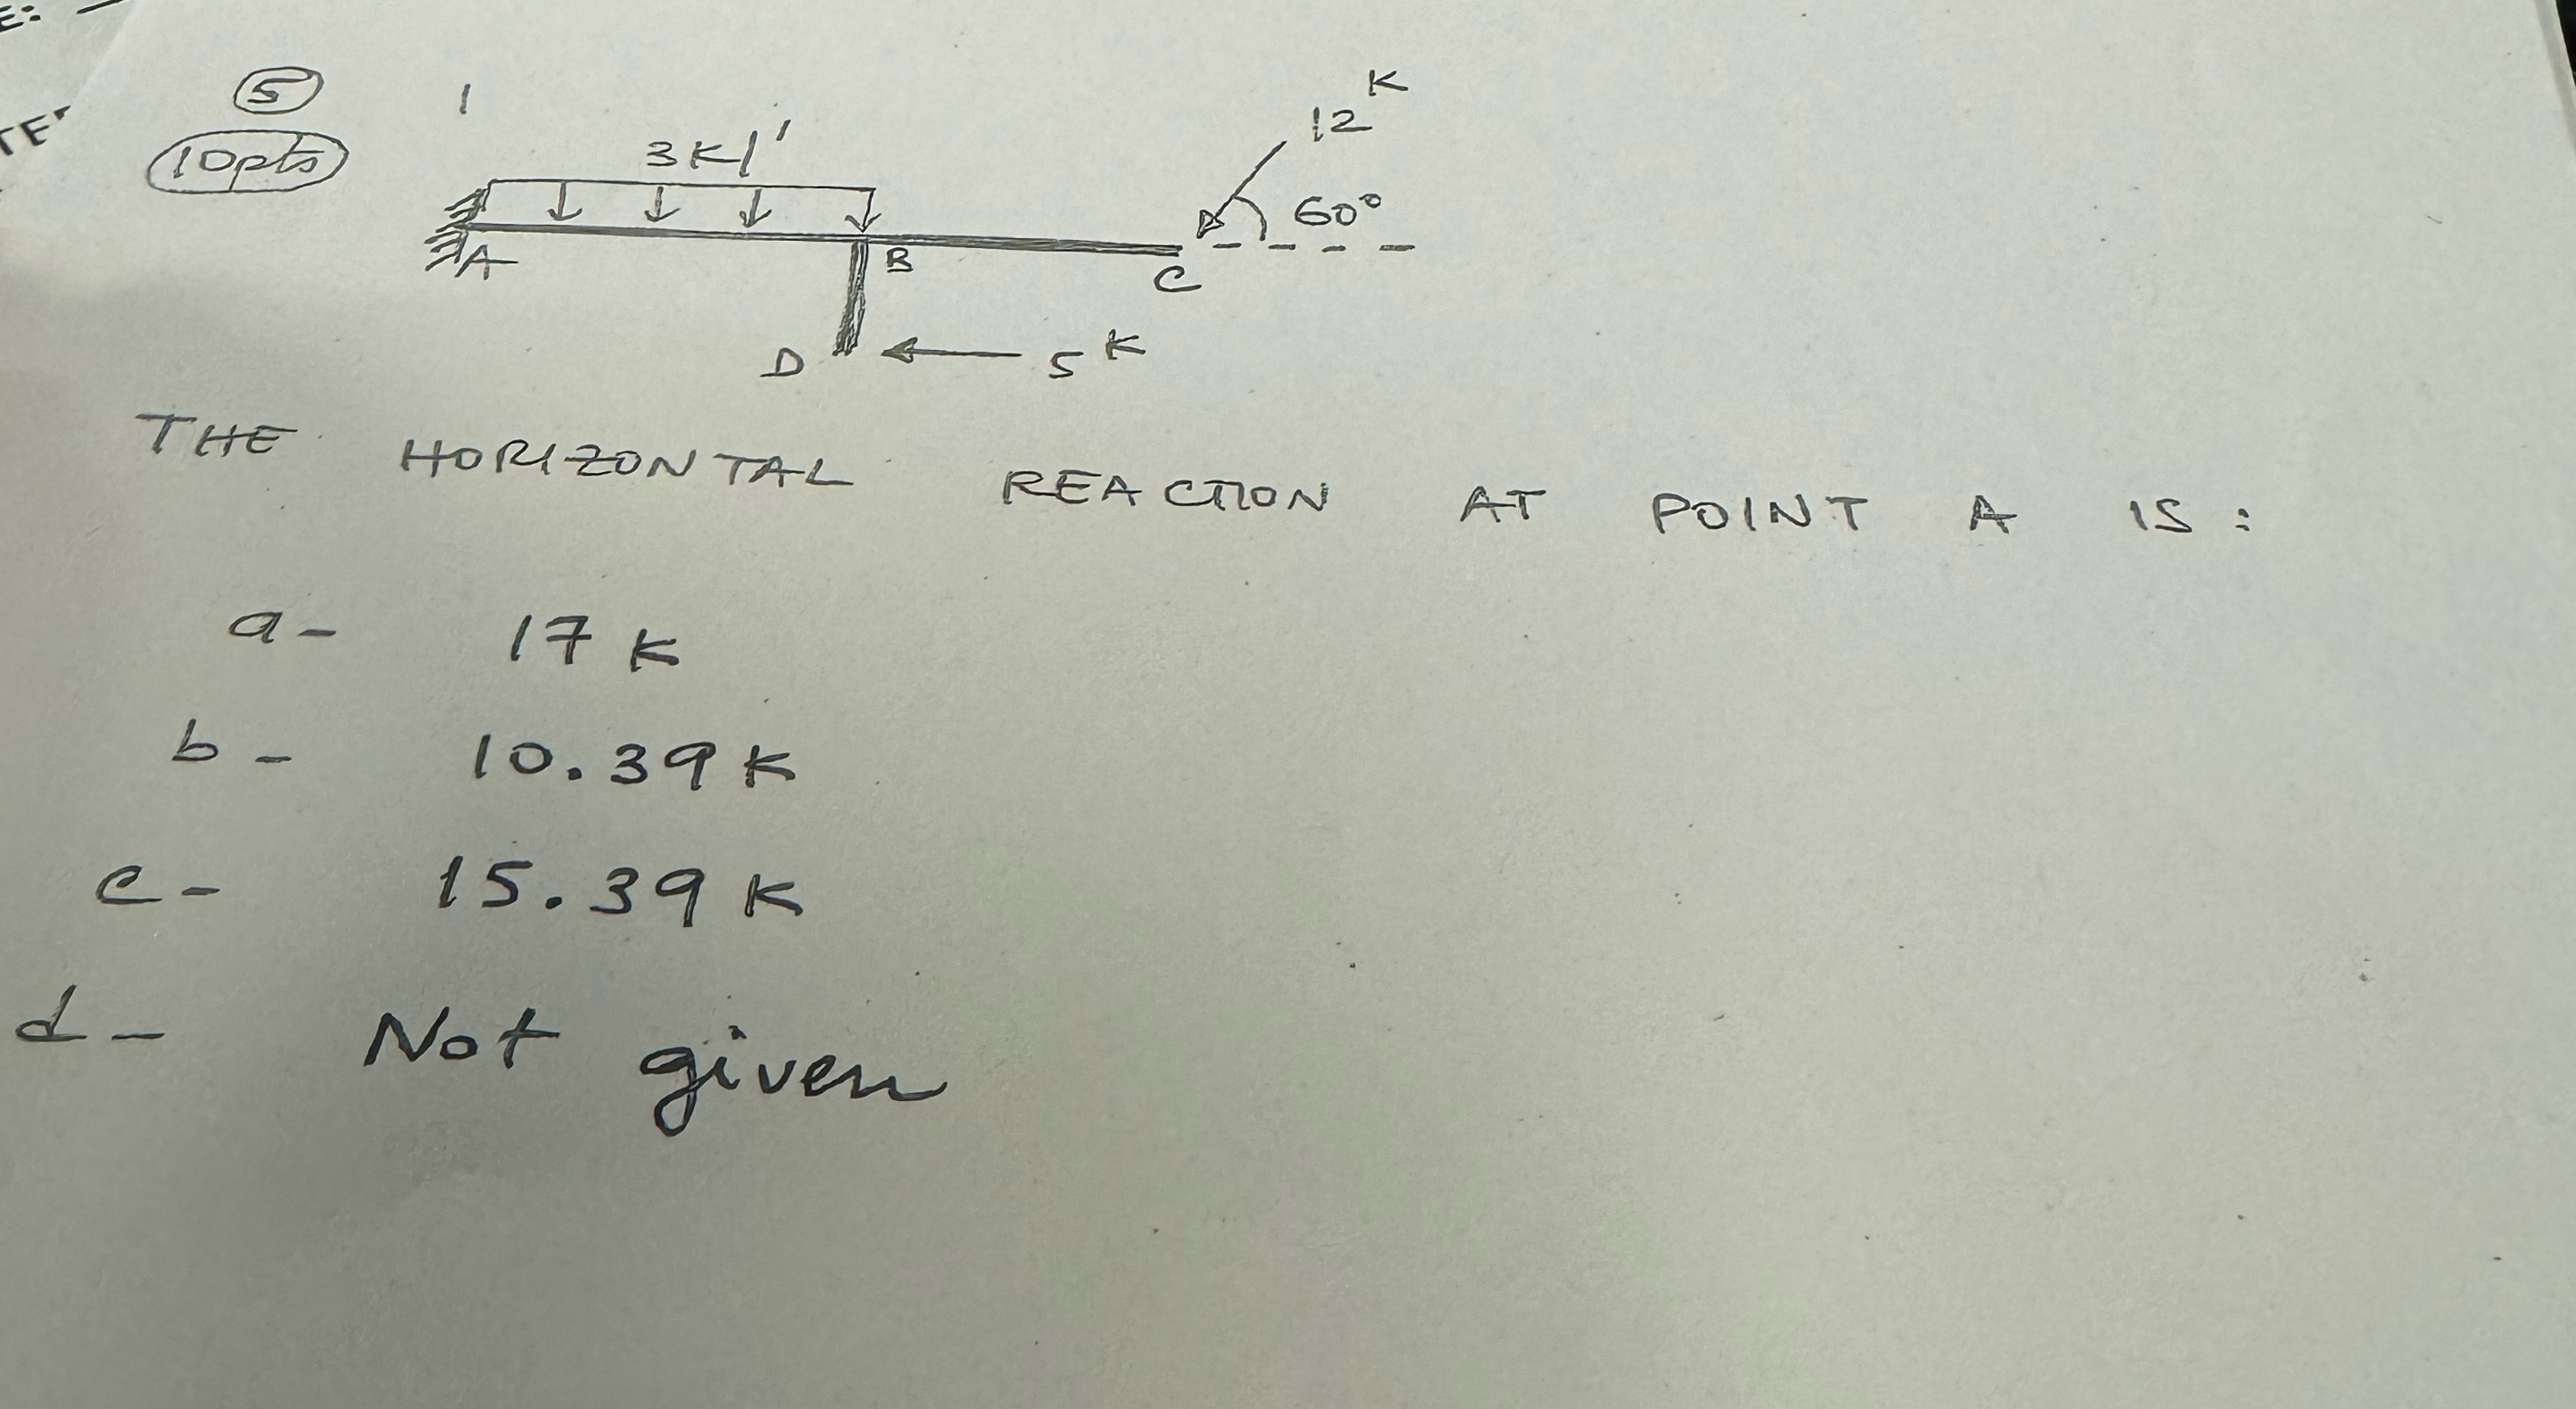 E:
TE
5
10pts
1
3K/'
12 K
60°
A
B
C
D
5 K
THE HORIZONTAL REACTION AT POINT A IS:
a- 17 K
b- 10.39 K
c- 15.39 K
d- Not given